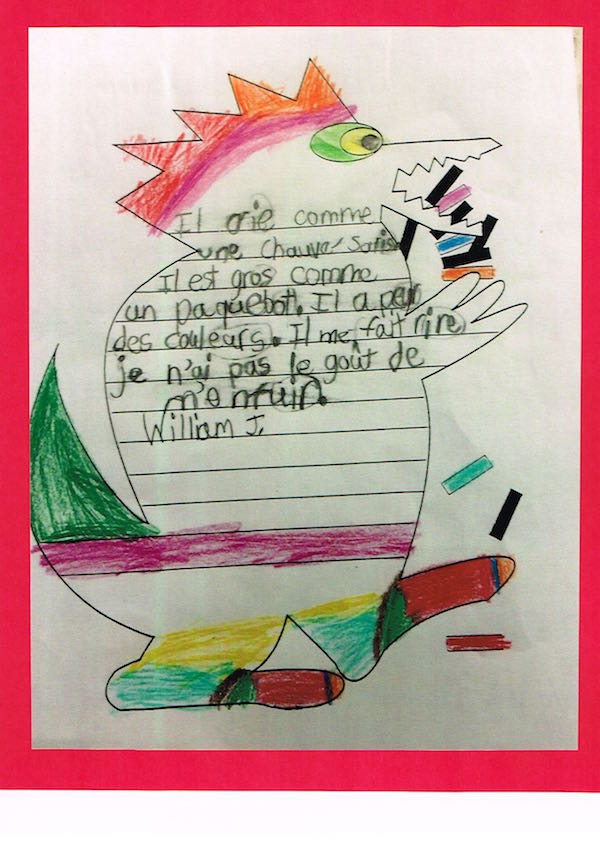 Il crie comme
une Chauve-Souris
Il est gros comme
un paquebot. Il a peur
des couleurs. Il me fait rire
je n'ai pas le goût de
m'enfuir.
William J.